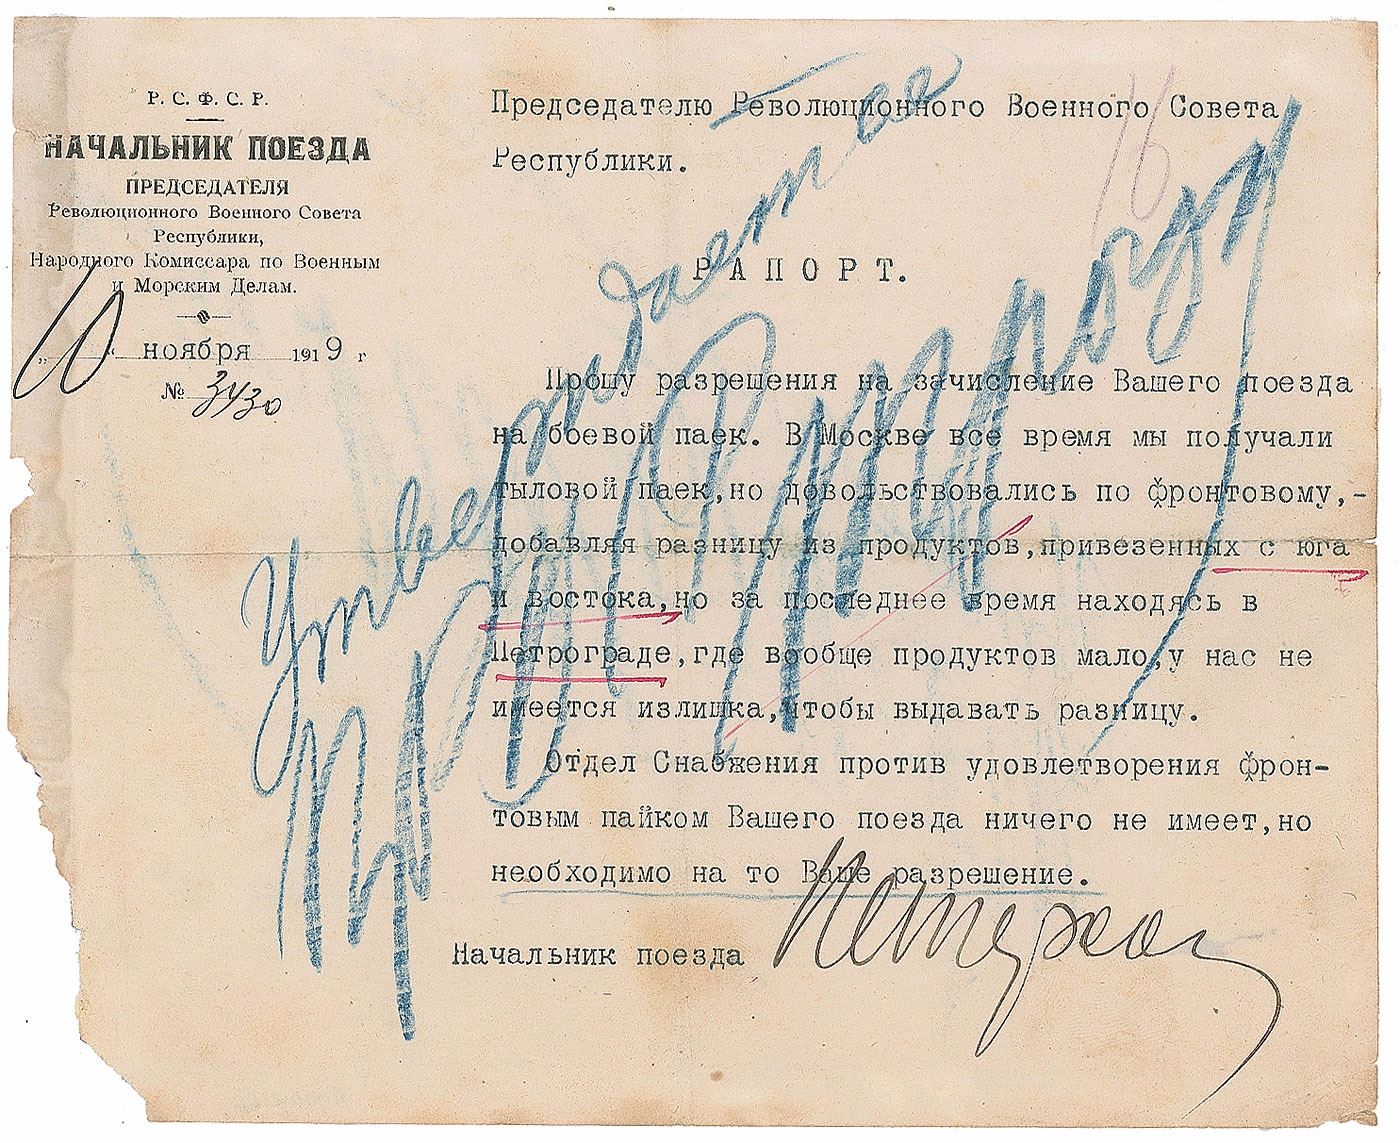 Р. С. Ф. С. Р.
НАЧАЛЬНИК ПОЕЗДА
ПРЕДСЕДАТЕЛЯ
Революционного Военного Совета
Республики,
Народного Комиссара по Военным
и Морским Делам.
„10“ ноября 1919 г
№ 3430
Председателю Революционного Военного Совета
Республики.
16
РАПОРТ.
Прошу разрешения на зачисление Вашего поезда
на боевой паек. В Москве все время мы получали
тыловой паек,но довольствовались по фронтовому,-
добавляя разницу из продуктов,привезенных с юга
и востока,но за последнее время находясь в
Петрограде,где вообще продуктов мало,у нас не
имеется излишка,чтобы выдавать разницу.
Отдел Снабжения против удовлетворения фрон-
товым пайком Вашего поезда ничего не имеет,но
необходимо на то Ваше разрешение.
Начальник поезда